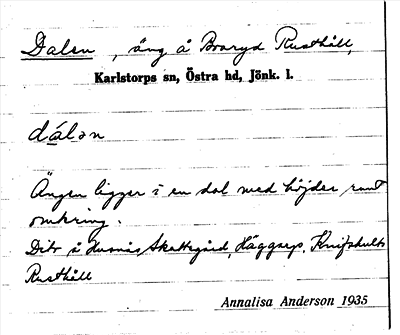 Dalen, äng å Boaryd Rusthåll,
Karlstorps sn, Östra hd, Jönk. l.
dálən
Ängen ligger i en dal med höjder runt
omkring.
Dito å Skattegård, Häggarp, Knifshults
Rusthåll
Annalisa Anderson 1935